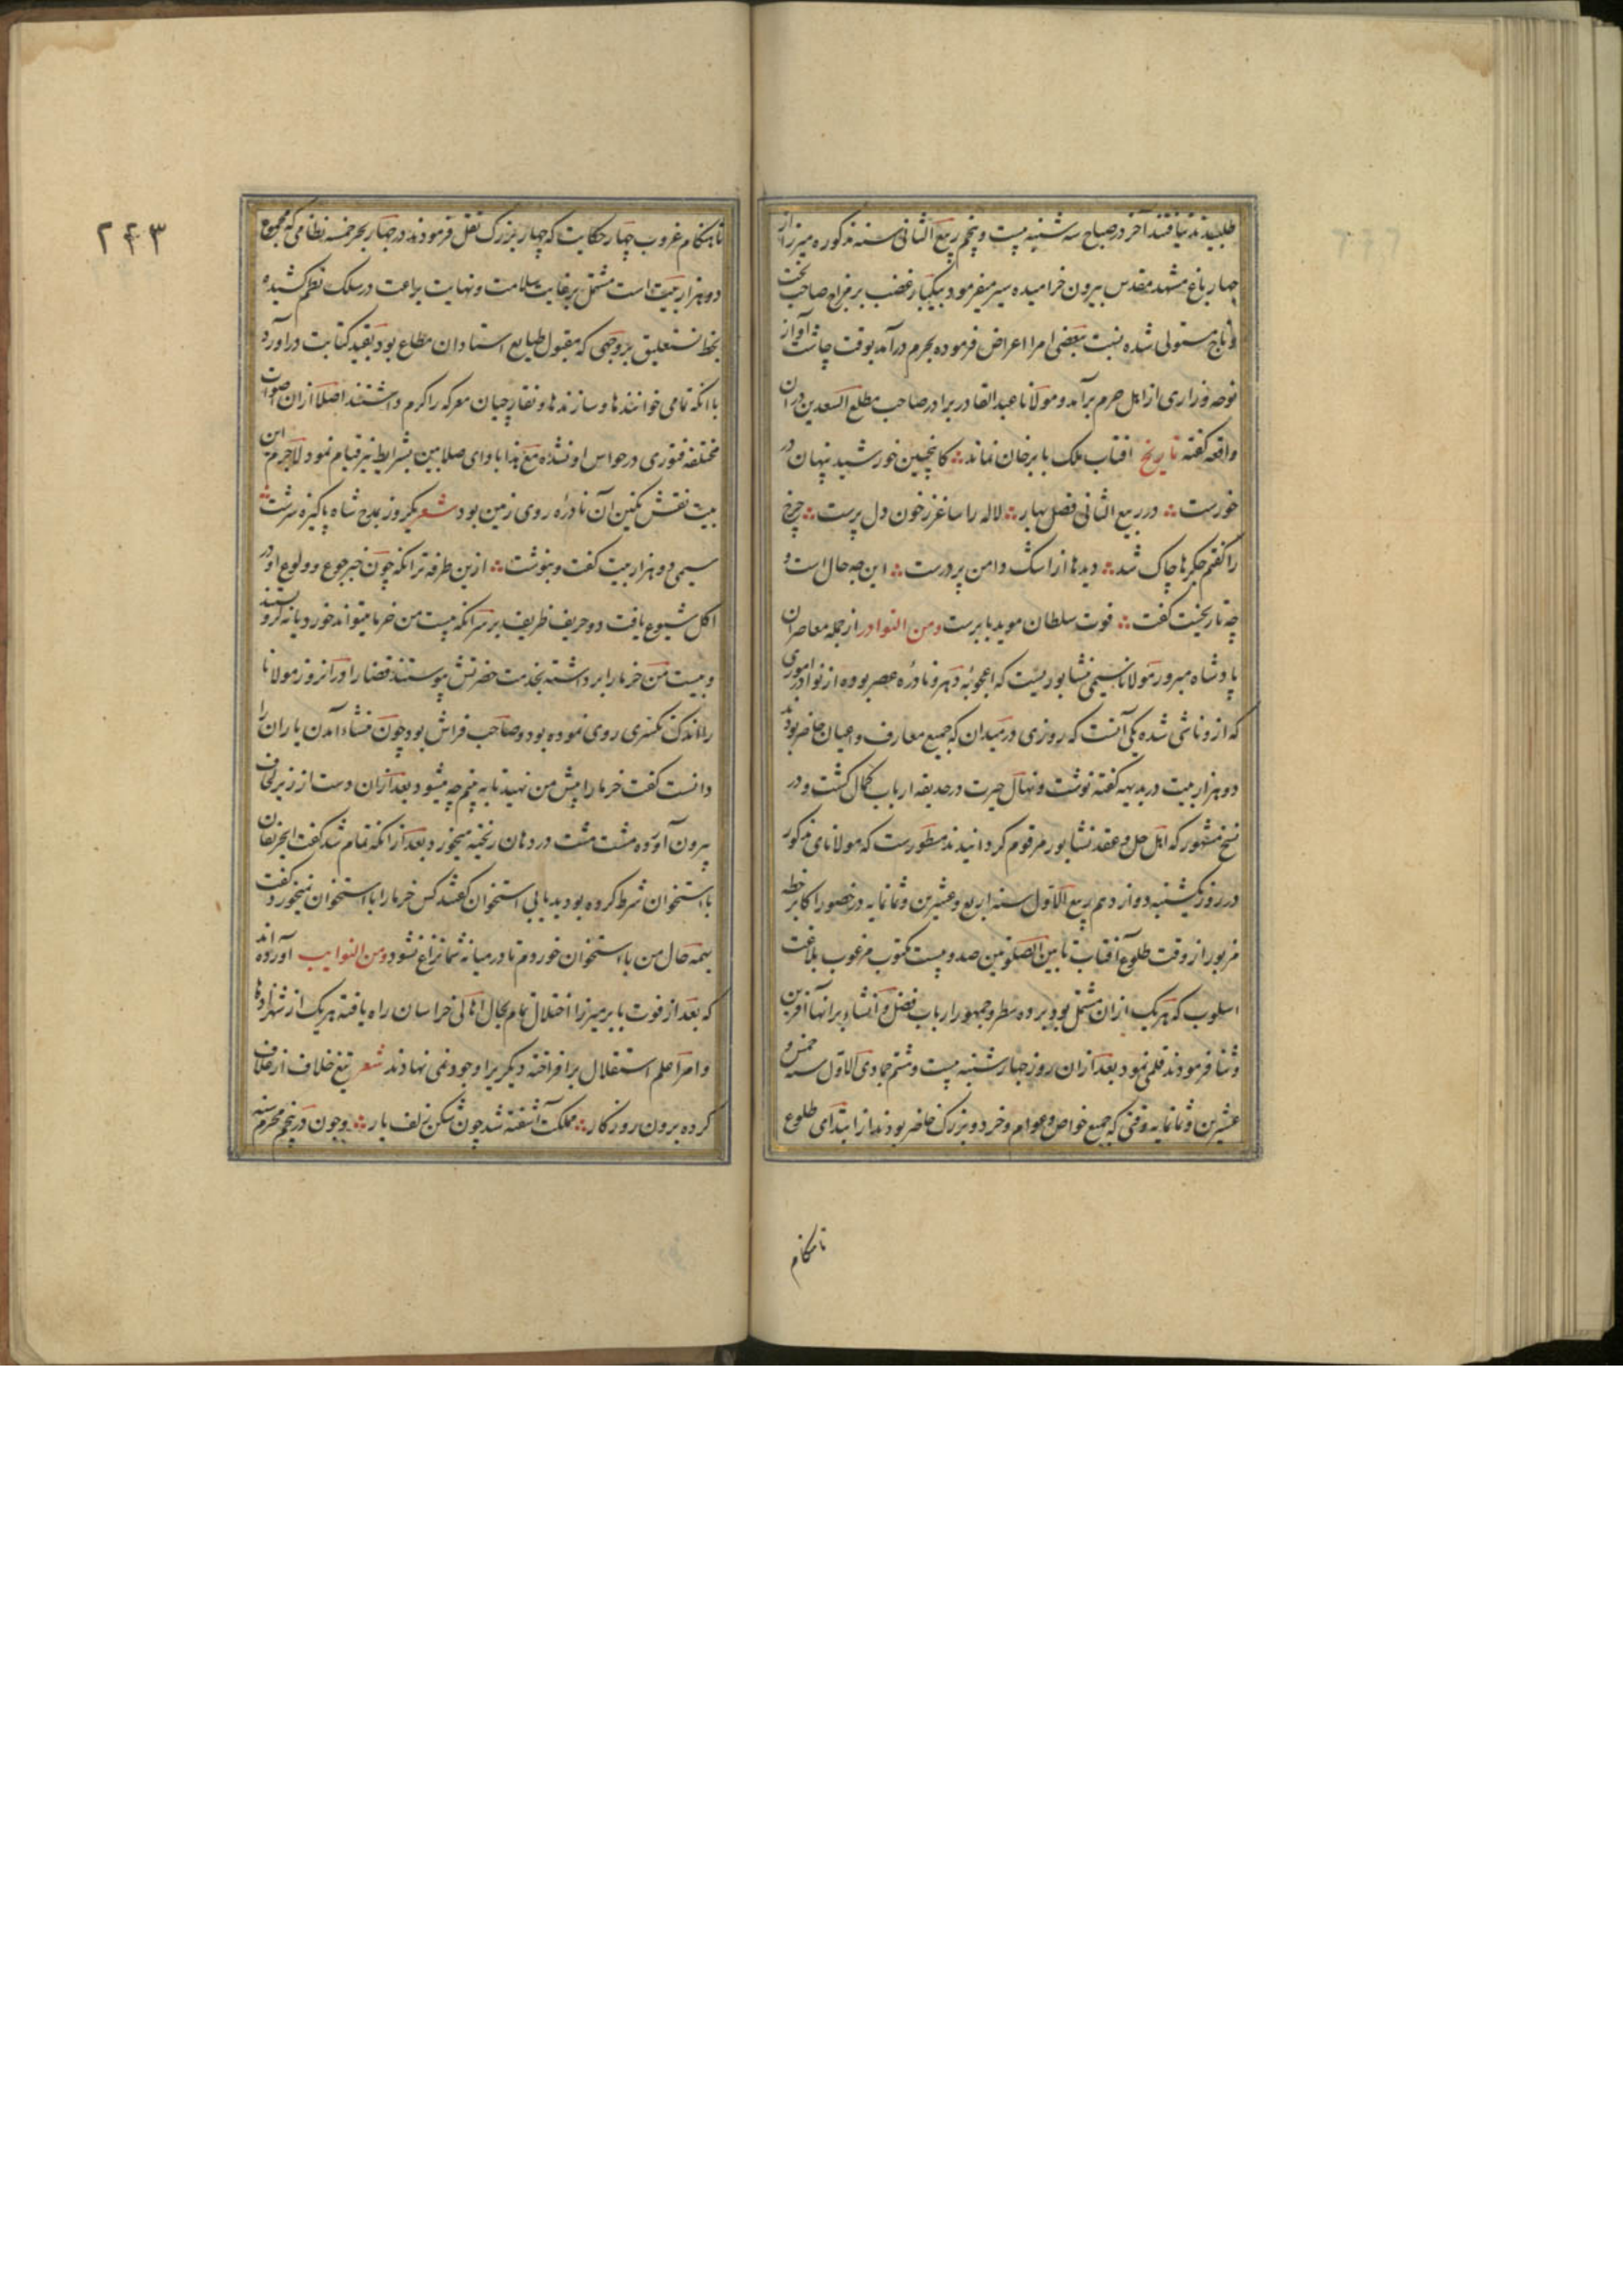 طلبیدند نیافتند آخر در صباح سه شنبه بیست و پنجم ربیع الثانی سنه مذکوره میرزا از
چهار باغ مشهد مقدس بیرون خرامیده سیر میفرمود بیکبار غضب بر مزاج صاحب تخت
و تاج مستولی شده نسبت ببعضی امرا اعراض فرموده بحرم درآمد بوقت چاشت آواز
نوحه و زاری از اهل حرم برآمد و مولانا عبدالقادر برادر صاحب مطلع السعدین در ان
واقعه گفته تاریخ آفتاب ملک بابر خان نماند کانچنین خورشید پنهان در
خورست در ربیع الثانی فصل بهار لاله را ساغر ز خون دل پرست چرخ
را گفتم جگرها چاک شد دیدها از اشک دامن پر درست این چه حال است و
چه تاریخیت گفت فوت سلطان موید بابرست ومن النوادر از جمله معاصران
پادشاه مبرور مولانا سیمی نشابوریست که اعجوبه دهر و نادره عصر بوده از نوادر اموری
که ازو ناشی شده یکی آنست که روزی در میدان که جمیع معارف و اعیان حاضر بودند
دو هزار بیت در بدیهه گفته نوشت و نهال حیرت در حدیقه ارباب کمال کشت و در
نسخ مشهور که اهل حل و عقد نشابور مرقوم کردانیدند مسطورست که مولانای مذکور
در روز یکشنبه دوازدهم ربیع الاول سنه اربع و عشرین و ثمانمایه در حضور اکابر خطه
مزبور از وقت طلوع آفتاب تا بین الصلوتین صد و بیست مکتوب مرغوب بلاغت
اسلوب که هر یک ازان مشتمل بود بر ده سطر و جمهور ارباب فضل و انشاء بر انها آفرین
و ثنا فرمودند قلمی نمود بعد ازان روز چهارشنبه بیست و هشتم جمادی الاول سنه خمس و
عشرین و ثمانمایه وقتی که جمیع خواص و عوام و خرد و بزرگ حاضر بودند از ابتدای طلوع
تا هنکام
۲۴۳
تا هنکام غروب چهار حکایت که چهار بزرک نقل فرمودند در چهار بحر خمسه نظامی که مجموع
دو هزار بیت است مشتمل بر غایت سلامت و نهایت براعت در سلک نظم کشیده
بخط نستعلیق بر وجهی که مقبول طبایع استادان مطاع بود بقید کتابت دراورد
با انکه تمامی خوانندها و سازندها و نقارچیان معرکه را کرم داشتند اصلا ازان اصوات
مختلفه فتوری در حواس او نشده مع هذا باوای صلا بین بشرایط نیز قیام نمود لاجرم این
بیت نقش نکین آن نادره روی زمین بود شعر یکروز بمدح شاه پاکیزه سرشت
سیمی دو هزار بیت گفت و بنوشت ازین طرفه تر انکه چون خبر جوع و ولوع او در
اکل شیوع یافت دو حریف ظریف بر سر انکه بیست من خرما میتواند خورد یا نه کرو بستند
و بیست من خرما را برداشته بخدمت حضرتش پیوستند قضا را دران روز مولانا
را اندک تکسری روی نموده بود و صاحب فراش بود چون منشاء آمدن یاران را
دانست گفت خرما را پیش من نهید تا به بینم چه میشود بعد ازان دست از زیر لحاف
بیرون آورده مشت مشت در دهان ریخته میخورد بعد از انکه تمام شد گفت ای حریفان
با استخوان شرط کرده بودید یا بی استخوان گفتند کس خرما را با استخوان نمیخورد گفت
بهمه حال من با استخوان خوردم تا در میانه شما نزاع نشود ومن النوایب آورده اند
که بعد از فوت بابر میرزا اختلال تمام بحال اهالی خراسان راه یافته هر یک از شهزادها
و امرا علم استقلال برافراخته دیگریرا وجود نمی نهادند شعر تیغ خلاف از غلاف
کرده برون روزکار مملکت آشفته شد چون شکن زلف یار و چون در پنجم محرم سنه